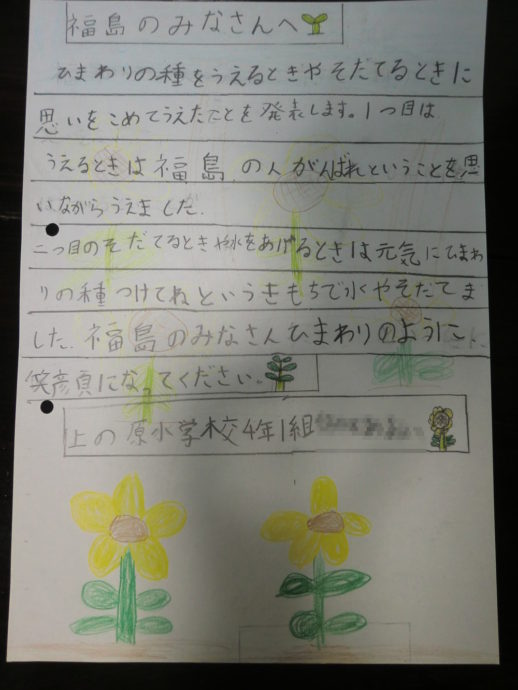 福島のみなさんへ
ひまわりの種をうえるときやそだてるときに
思いをこめてうえたことを発表します。1つ目は
うえるときは福島の人がんばれということを思
いながらうえました。
二つ目のそだてるときや水をあげるときは元気にひまわ
りの種つけてねというきもちで水やそだてま
した。福島のみなさんひまわりのように
笑顔になってください。
上の原小学校4年1組